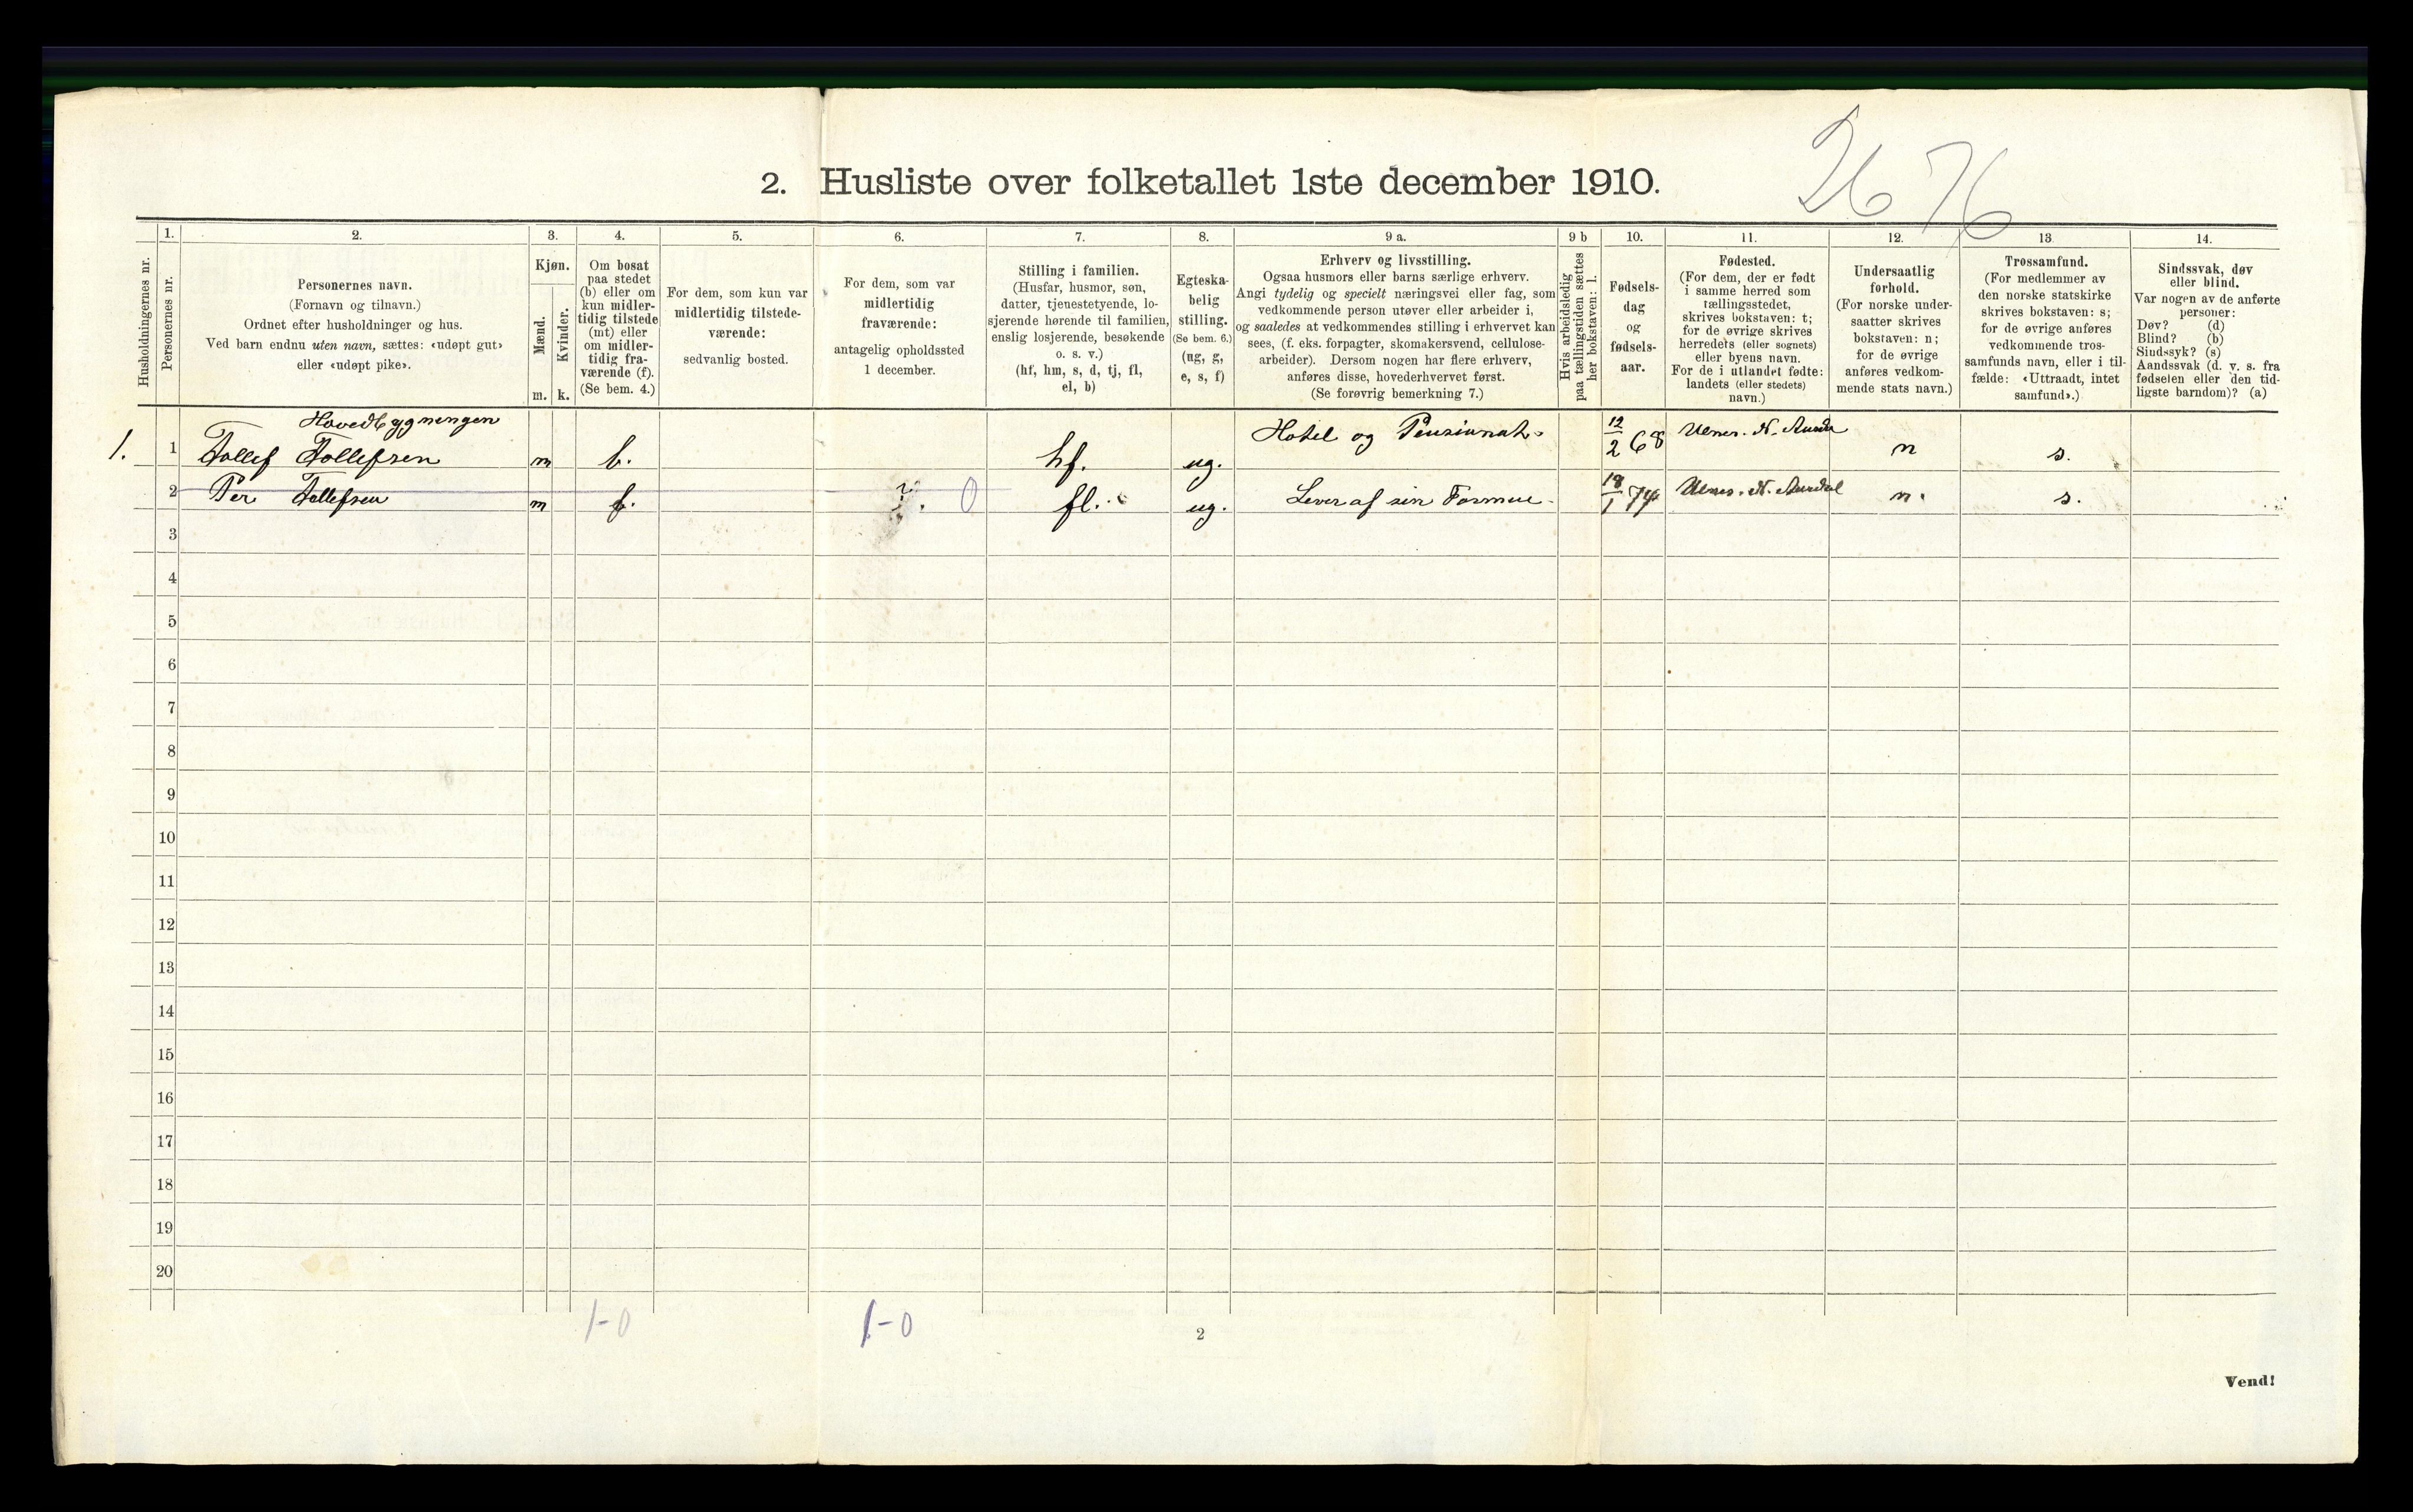 2676
2. Husliste over folketallet 1ste december 1910.
1. 2. 3. 4. 5. 6. 7. 8. 9 a. 9 b 10. 11. 12. 13. 14.
Husholdningernes nr.
Personernes nr.
Personernes navn.
(Fornavn og tilnavn.)
Ordnet efter husholdninger og hus.
Ved barn endnu uten navn, sættes: «udøpt gut»
eller «udøpt pike».
Kjøn.
Mænd.
Kvinder.
m. k.
Om bosat
paa stedet
(b) eller om
kun midler-
tidig tilstede
(mt) eller
om midler-
tidig fra-
værende (f).
(Se bem. 4.)
For dem, som kun var
midlertidig tilstede-
værende:
sedvanlig bosted.
For dem, som var
midlertidig
fraværende:
antagelig opholdssted
1 december.
Stilling i familien.
(Husfar, husmor, søn,
datter, tjenestetyende, lo-
sjerende hørende til familien,
enslig losjerende, besøkende
o. s. v.)
(hf, hm, s, d, tj, fl,
el, b)
Egteska-
belig
stilling.
(Se bem. 6.)
(ug, g,
e, s, f)
Erhverv og livsstilling.
Ogsaa husmors eller barns særlige erhverv.
Angi tydelig og specielt næringsvei eller fag, som
vedkommende person utøver eller arbeider i,
og saaledes at vedkommendes stilling i erhvervet kan
sees, (f. eks. forpagter, skomakersvend, cellulose-
arbeider). Dersom nogen har flere erhverv,
anføres disse, hovederhvervet først.
(Se forøvrig bemerkning 7.)
Hvis arbeidsledig
paa tællingstiden sættes
her bokstaven: l.
Fødsels-
dag
og
fødsels-
aar.
Fødested.
(For dem, der er født
i samme herred som
tællingsstedet,
skrives bokstaven: t;
for de øvrige skrives
herredets (eller sognets)
eller byens navn.
For de i utlandet fødte:
landets (eller stedets)
navn.)
Undersaatlig
forhold.
(For norske under-
saatter skrives
bokstaven: n;
for de øvrige
anføres vedkom-
mende stats navn.)
Trossamfund.
(For medlemmer av
den norske statskirke
skrives bokstaven: s;
for de øvrige anføres
vedkommende tros-
samfunds navn, eller i til-
fælde: «Uttraadt, intet
samfund».)
Sindssvak, døv
eller blind.
Var nogen av de anførte
personer:
Døv? (d)
Blind? (b)
Sindssyk? (s)
Aandssvak (d. v. s. fra
fødselen eller den tid-
ligste barndom)? (a)
Hovedbygningen
1. 1 Tollef Tollefsen m b. hf. ug. Hotel og Pensionat. 12/2 68 Ulnes. N. Aurda n s.
2 Per Tollefsen m f. ?. 0 fl. ug. Lever af sin Formue. 18/1 74 Ulnes. N. Aurdal n. s.
3
4
5
6
7
8
9
10
11
12
13
14
15
16
17
18
19
20
1-0 1-0
2
Vend!